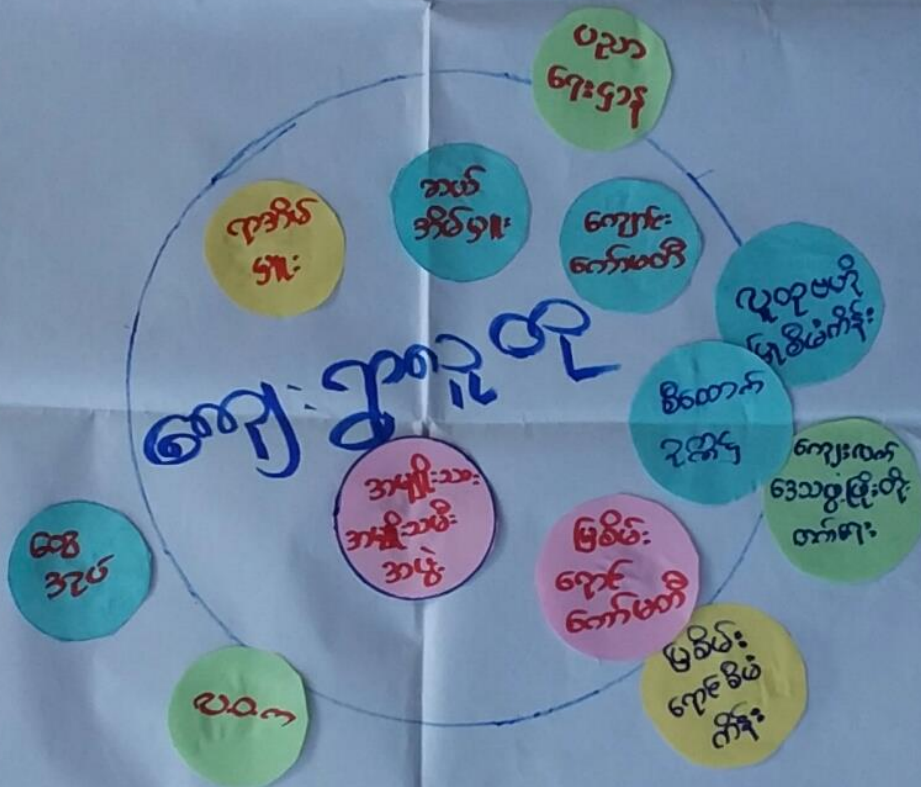 ပညာ
ရေးဌာန
ရာအိမ်
မှူး
ဆယ်
အိမ်မှူး
ကျောင်း
ကော်မတီ
လူထုဗဟို
ပြုစီမံကိန်း
ကျေးရွာလူထု
စီထောက်
ဥက္ကဌ
ကျေးလက်
ဒေသဖွံ့ဖြိုးတိုး
တက်ရေး
အမျိုးသား
အမျိုးသမီး
အဖွဲ့
မြစိမ်း
ရောင်
ကော်မတီ
အုပ်
မြစိမ်း
ရောင်စီမံ
ကိန်း
လ.ဝ.က